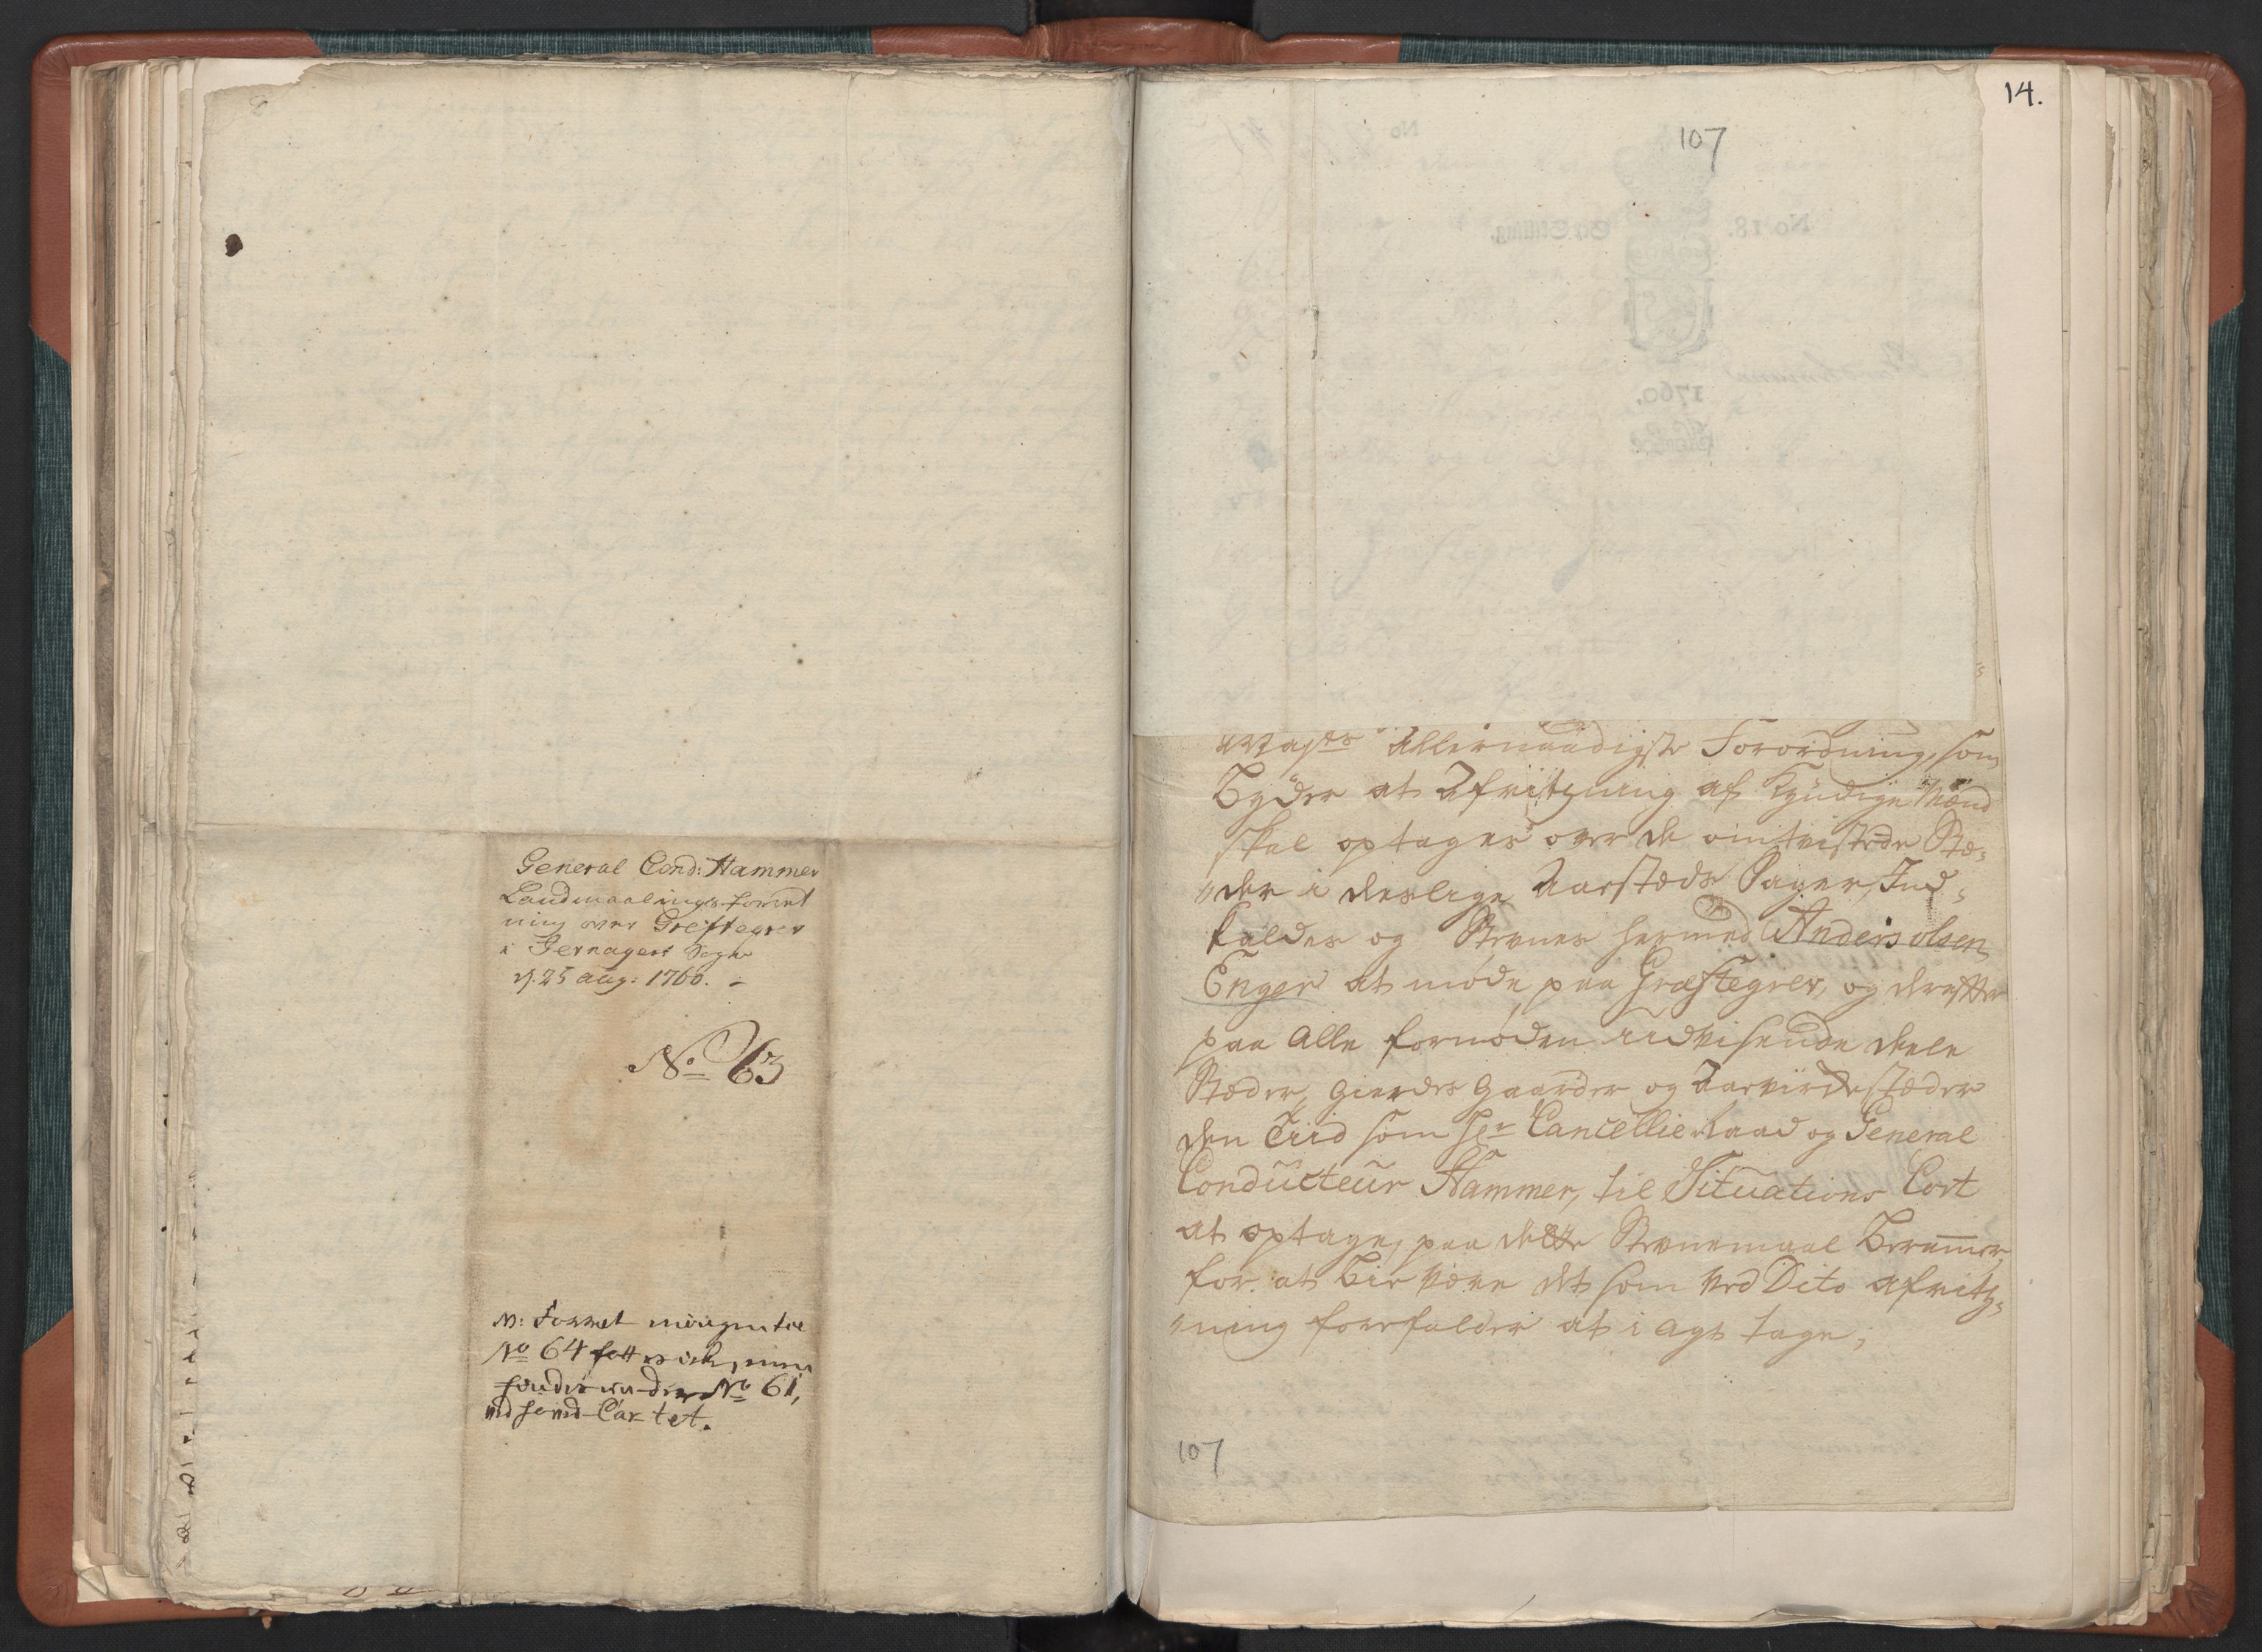 General Cond: Hammer
Landmaalings forret
ning over Greftegrev
i Jernagers Sogn
d. 25 aug: 1760.
No 63
NB: Forret ningen til
No 64 fattes ich, men
findes under No 61,
med samt Cartet.
14.
107
No 18.
1760.
Mayts Allernaadigste Forordning, som
Byder at Afritzning af Kyndige Mænd
skal optages over de omtvistede Stæ-
der i deslige Aarstæds Sager, Ind-
kaldes og Stevnes hermed Anders olsen
Enger at møde paa Græftegrev, og derefter
paa alle fornøden udvisende dele
Stæder, gierdes gaarder og Aasteder
den Tiid som Hr Cancellie Raad og General
Conducteur Hammer, til Situations Cort
at optage, paa dette Stevnemaal Berammer
for at bie være det som ved Dito afritz-
ning forefalder at i agt tage;
107